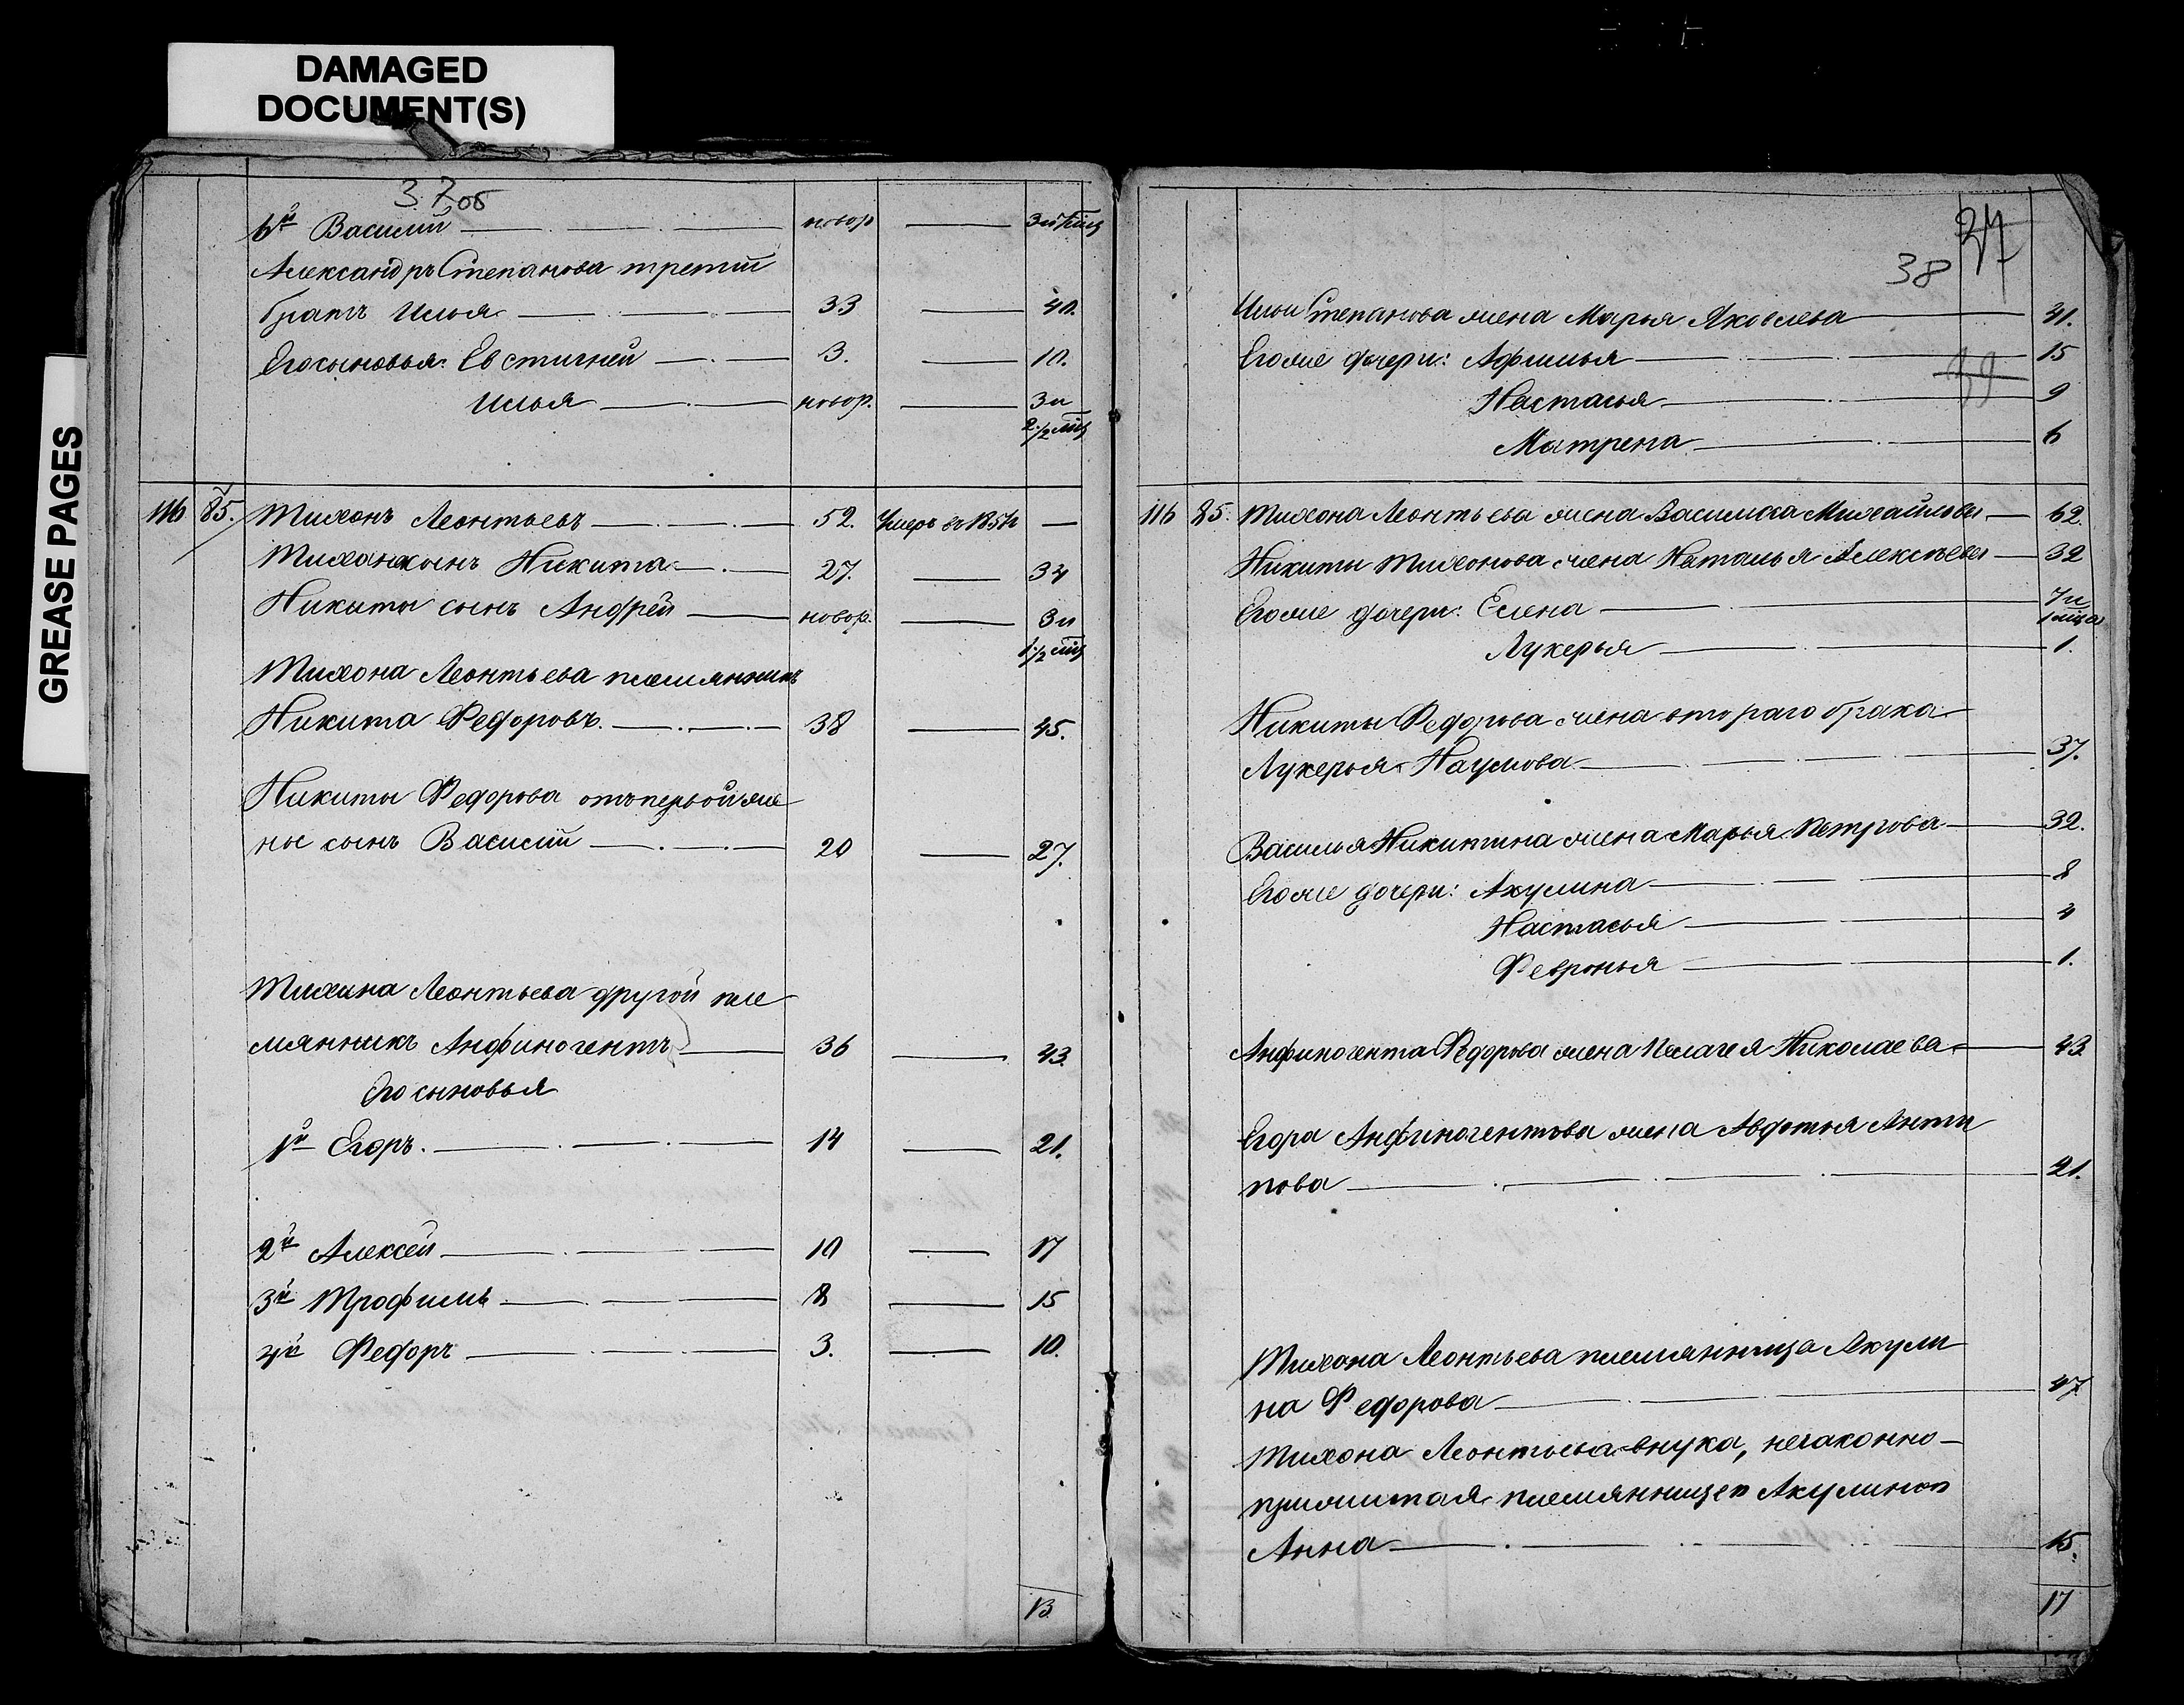 DAMAGED
DOCUMENT(S)
GREASE PAGES
37об
6й Василій новор 3 и
Александръ Степанова третій
братъ Илья 33 40.
Его сыновья: Евстигней 3. 10.
Илья новор. 3 и
2 1/2 мѣц
116 85. Тихонъ Леонтьевъ 52. Умеръ въ
Тихона сынъ Никита 27. 34
Никиты сынъ Андрей новор. 3 и
1 1/2 мѣц
Тихона Леонтьева племянникъ
Никита Федоровъ. 38 45.
Никиты Федорова отъ первой же
ны сынъ Василій 20 27.
Тихона Леонтьева другой пле
мянникъ Анфиногентъ 36 43.
Его сыновья
1й Егоръ. 14 21.
2й Алексей 10 17
3й Трофимъ 8 15
4й Федоръ 3. 10.
13
38
Ильи Степанова жена Марья Яковлева 41.
Его же дочери: Афимья 15
Настасья 9
Матрена 6
116 85. Тихона Леонтьева жена Василиса Михайлова 62.
Никиты Тихонова жена Наталья Алексѣева 32
Его же дочери: Елена 7 и
1 мѣца
Лукерья 1.
Никиты Федорова жена втораго брака
Лукерья Наумова 37.
Василья Никитина жена Марья Петрова 32.
Его же дочери: Акулина 8
Настасья 4
Февронья 1.
Анфиногента Федорова жена Пелагея Николаева 43
Егора Анфиногентова жена Авдотья Анти
пова 21.
Тихона Леонтьева племянница Акули
на Федорова 47
Тихона Леонтьева внука, незаконно-
прижитая племянницей Акулиной
Анна 15.
17